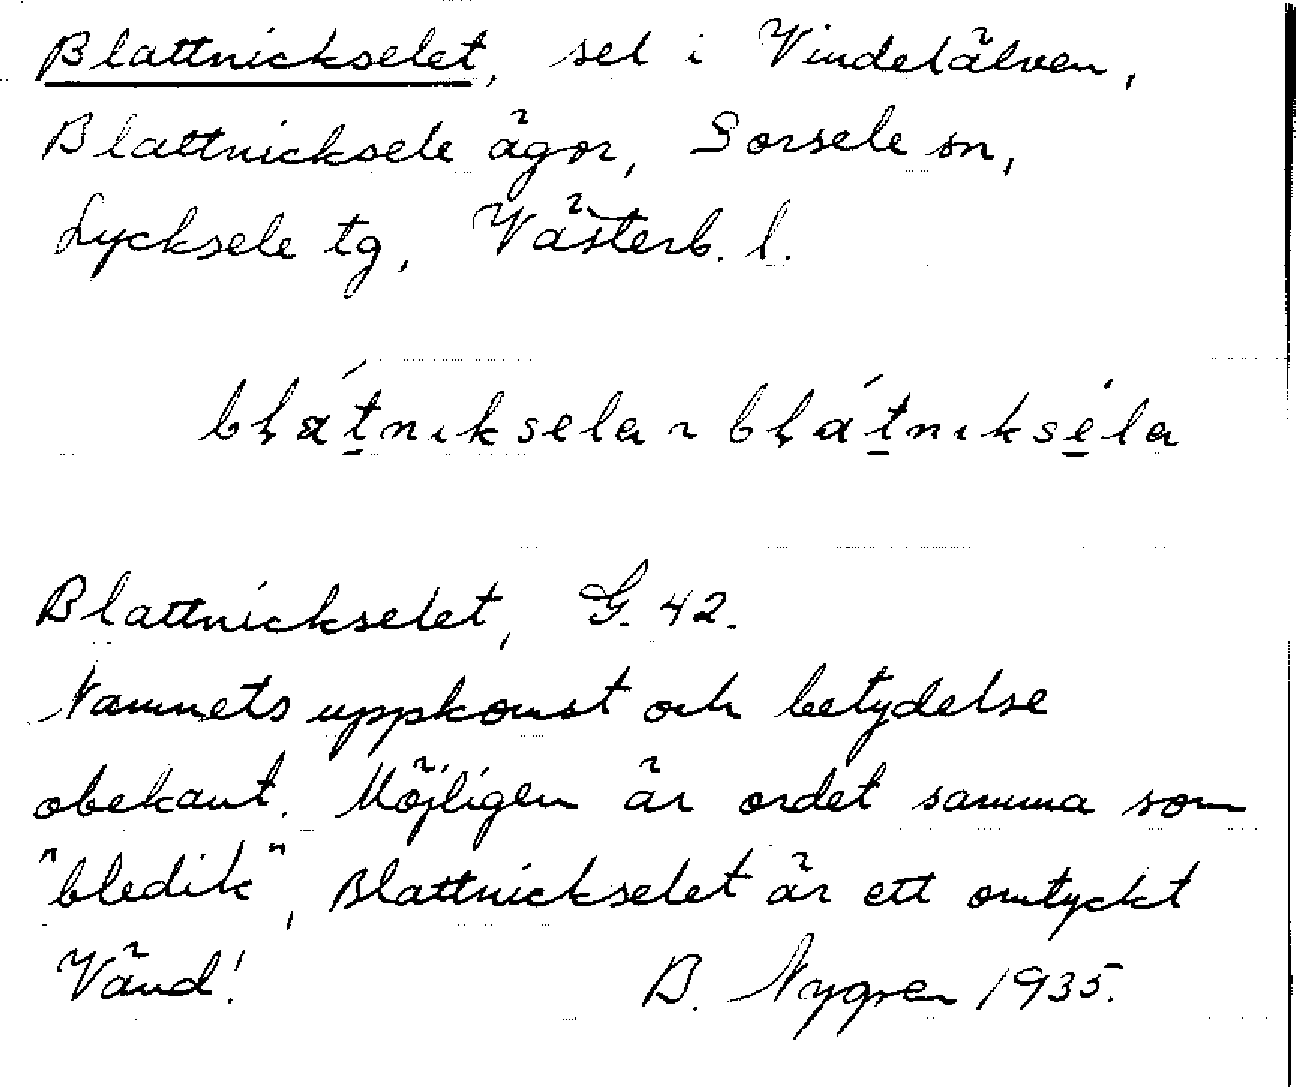 Blattnickselet, sel i Vindelälven,
Blattnicksele ägor, Sorsele sn,
Lycksele tg, Västerb. l.
blátniksela ~ blátnikséla
Blattnickselet, G. 42.
Namnets uppkomst och betydelse
obekant. Möjligen är ordet samma som
"bledik", Blattnickselet är ett omtyckt
Vänd! B. Nygren 1935.